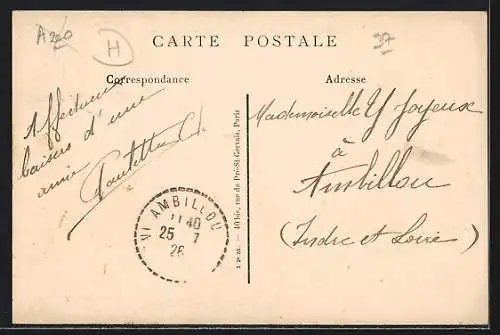 A220
H
37
CARTE POSTALE
Correspondance
Adresse
Affectueux
baisers d'une
amie
AMBILLOU
11 40
25 7
26
40 bis, rue du Pré-St-Gervais, Paris
Mademoiselle Y Joyeux
à
Ambillou
(Indre et Loire)